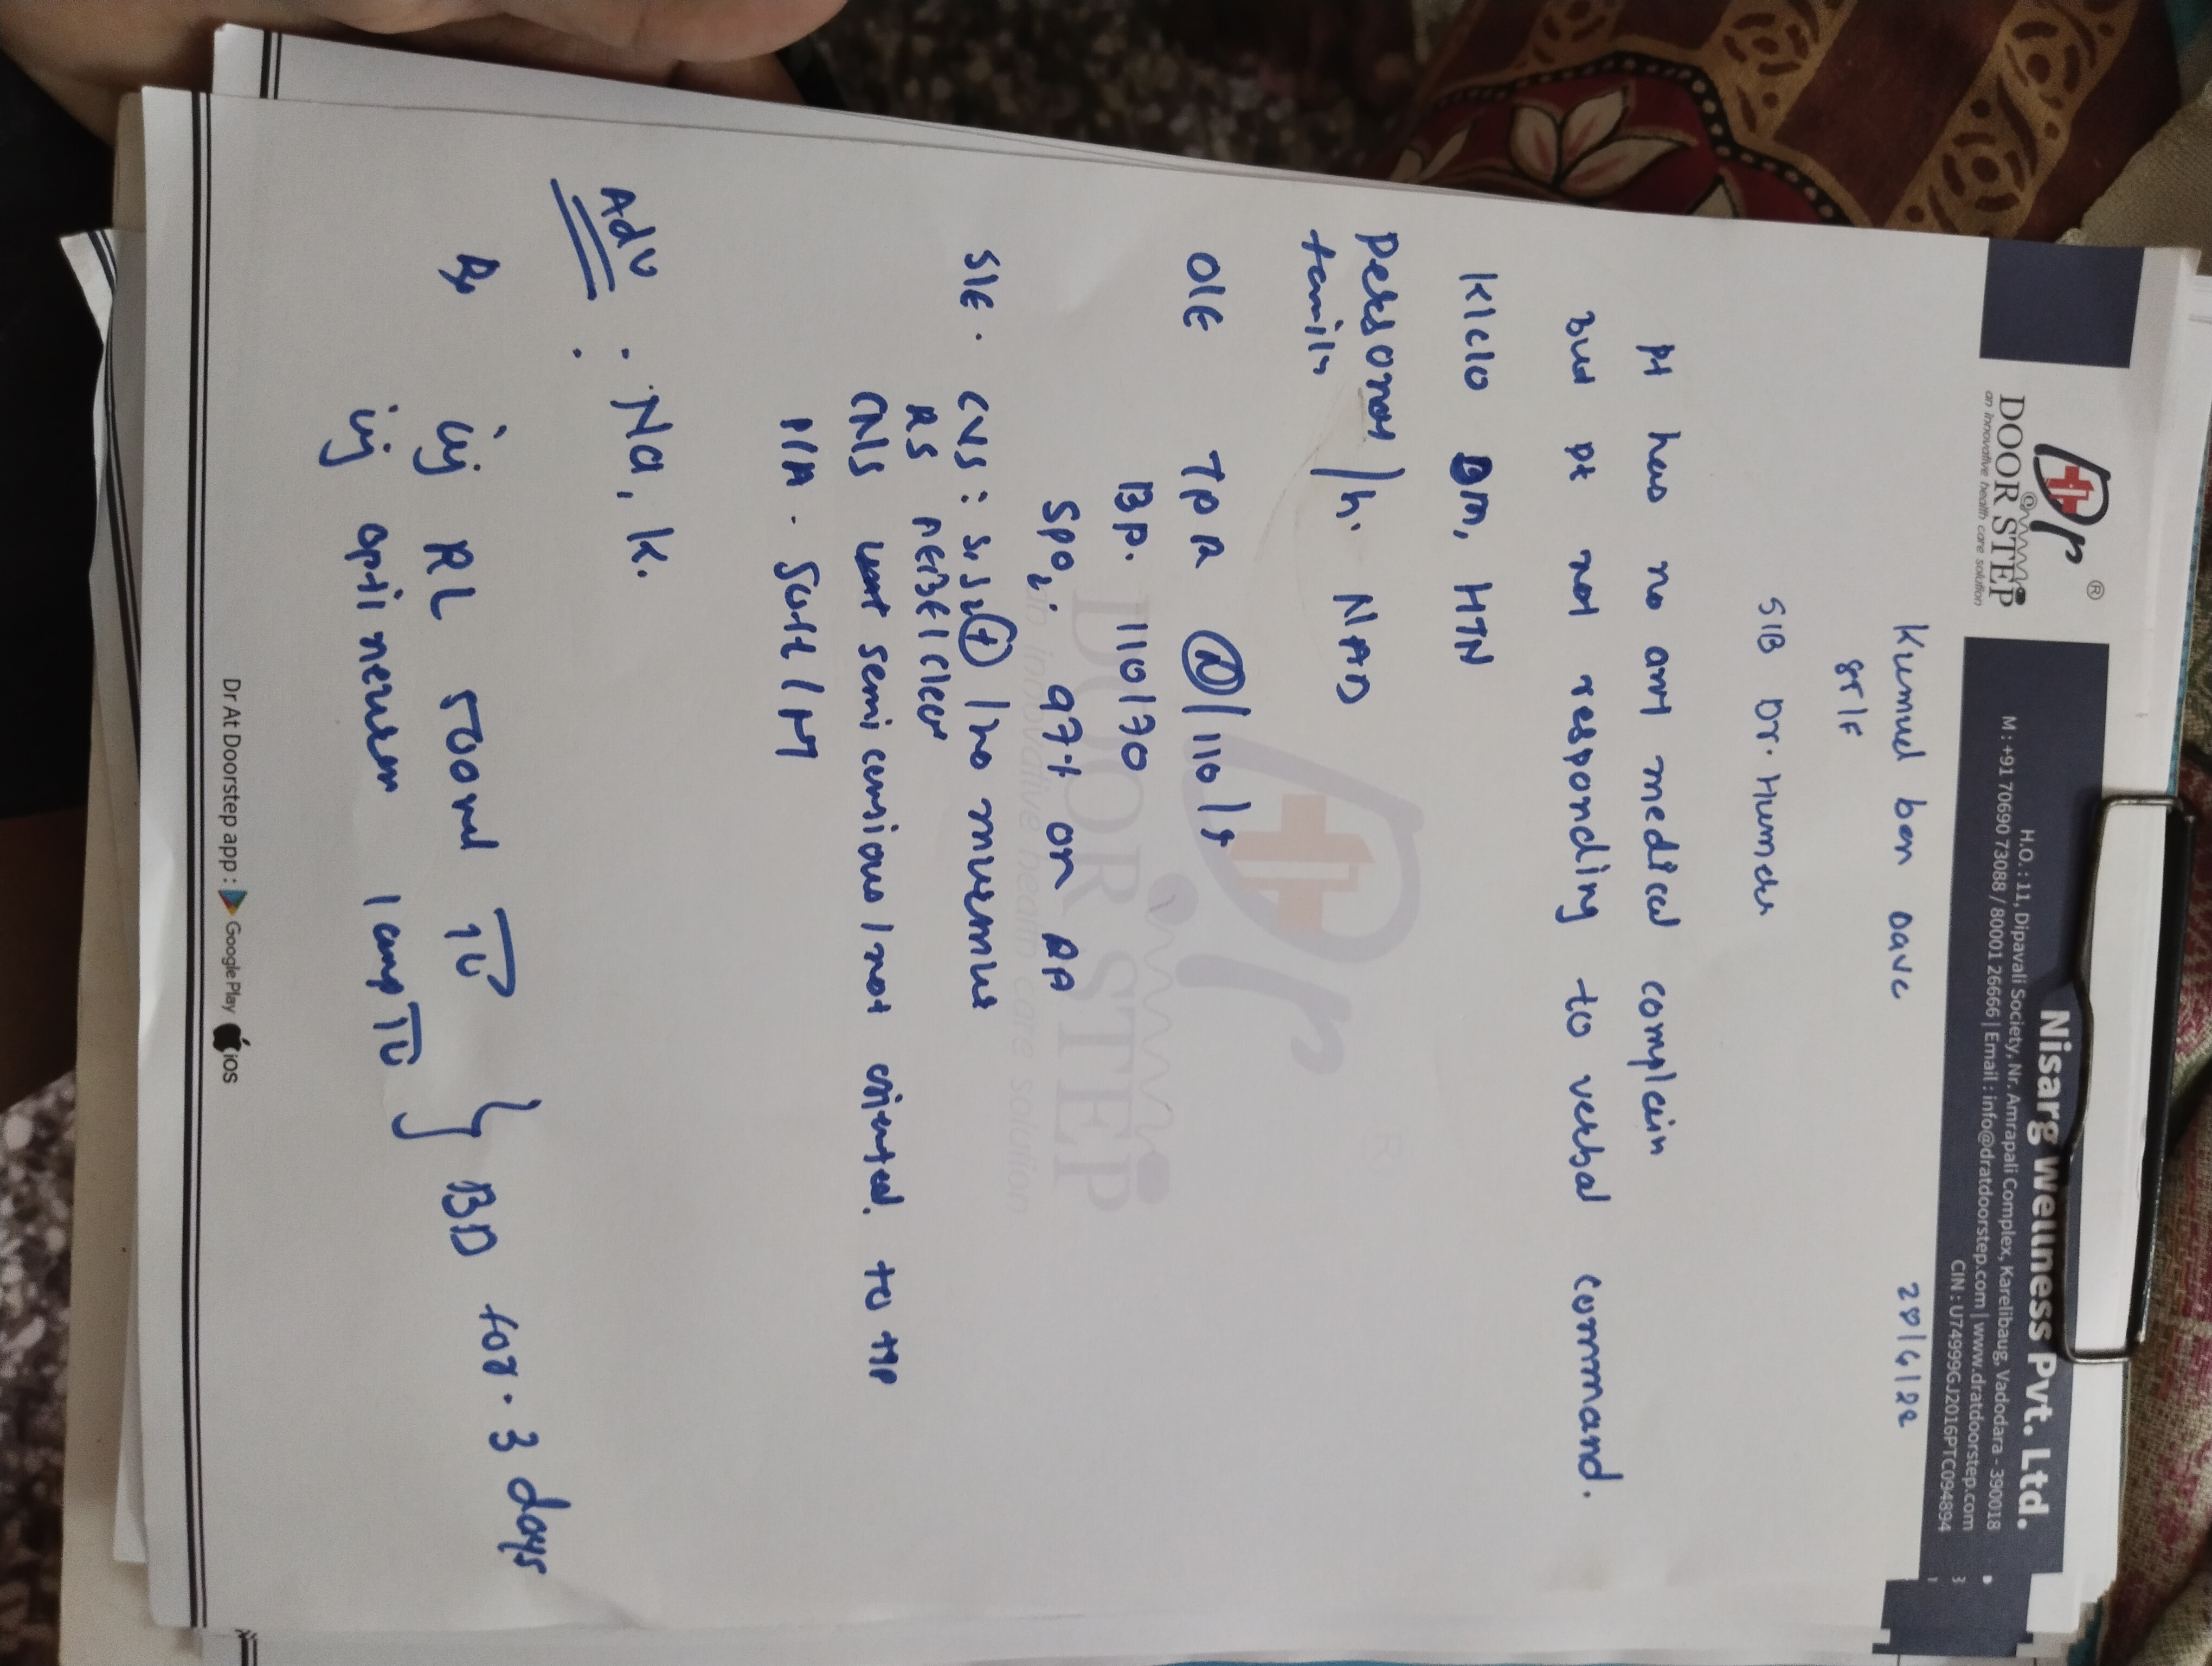 Dr®
DOOR STEP
an innovative health care solution
Nisarg Wellness Pvt. Ltd.
H.O. : 11, Dipavali Society, Nr. Amrapali Complex, Karelibaug, Vadodara - 390018
M : +91 70690 73088 / 80001 26666 | Email : info@dratdoorstep.com | www.dratdoorstep.com
CIN : U74999GJ2016PTC094894
Kumud ben Dave
S/B Dr.
Pt has no any medical complain
But pt not responding to verbal command.
K/c/o DM, HTN
Personal / h. NAD
family
O/E TPR (N) / 110 /
BP. 110/70
SpO2 97% on RA
S/E. CVS : S1 S2 (+) / no murmur
RS AEBE / clear
CNS semi consious / not oriented. to TPP
P/A. Soft /
Adv : Na, K.
Rx inj RL 500ml IV } BD for. 3 days
inj optineuron 1 amp IV
Dr
DOOR STEP
an innovative health care solution
Dr At Doorstep app : Google Play iOS